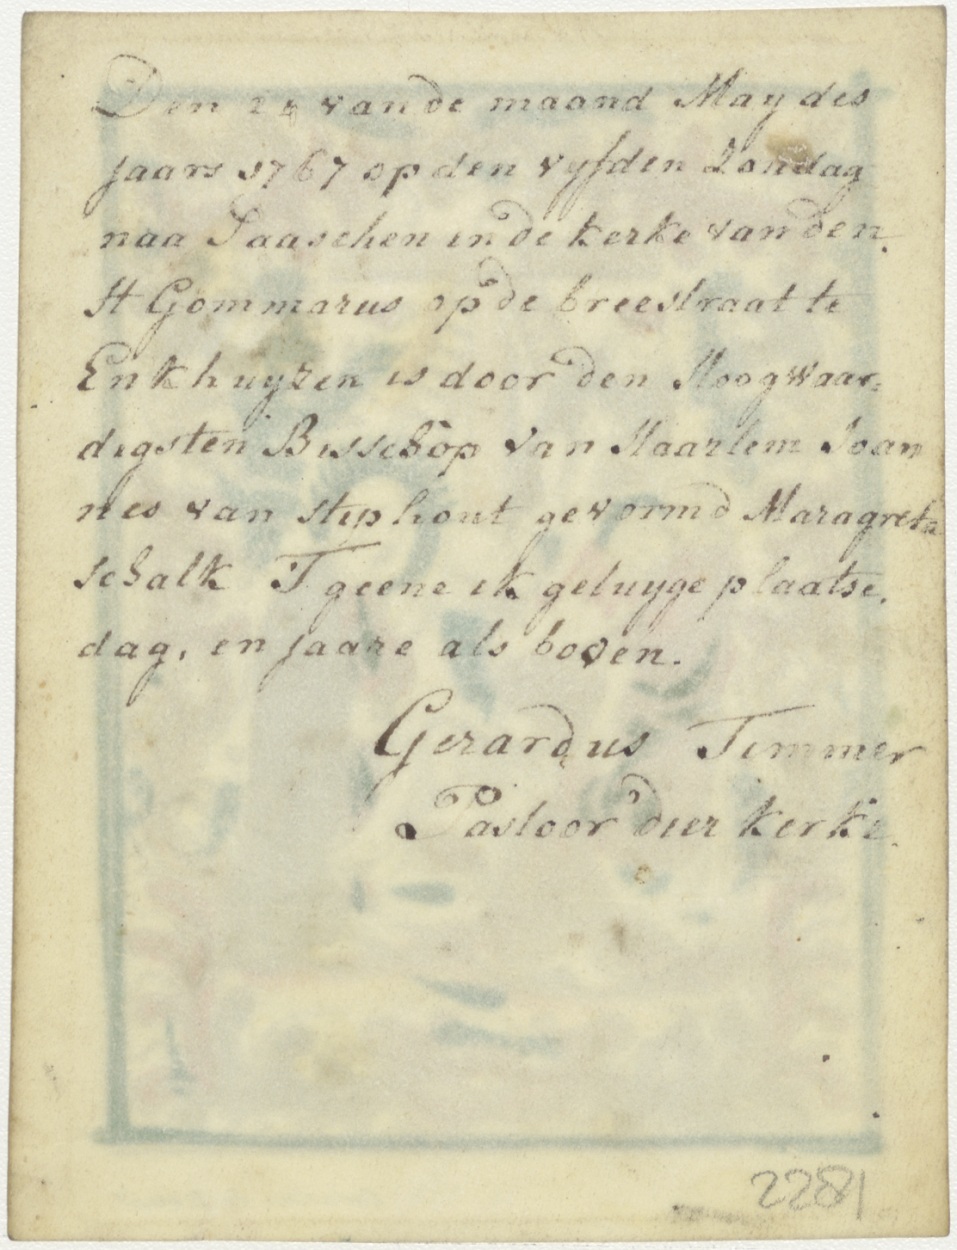 Den 24 van de maand May des
jaars 1767 op den vyfden Zondag
naa Paaschen in de kerke van den
St Gommarus op de breestraat te
Enkhuyzen is door den Hoogwaar-
digsten Bisschop van Haarlem Joan
nes van stiphout gevormd Maragreta
schalk T geene ik getuyge plaatse,
dag, en jaare als boven.
Gerardus Timmer
Pastoor dier kerke.
2281